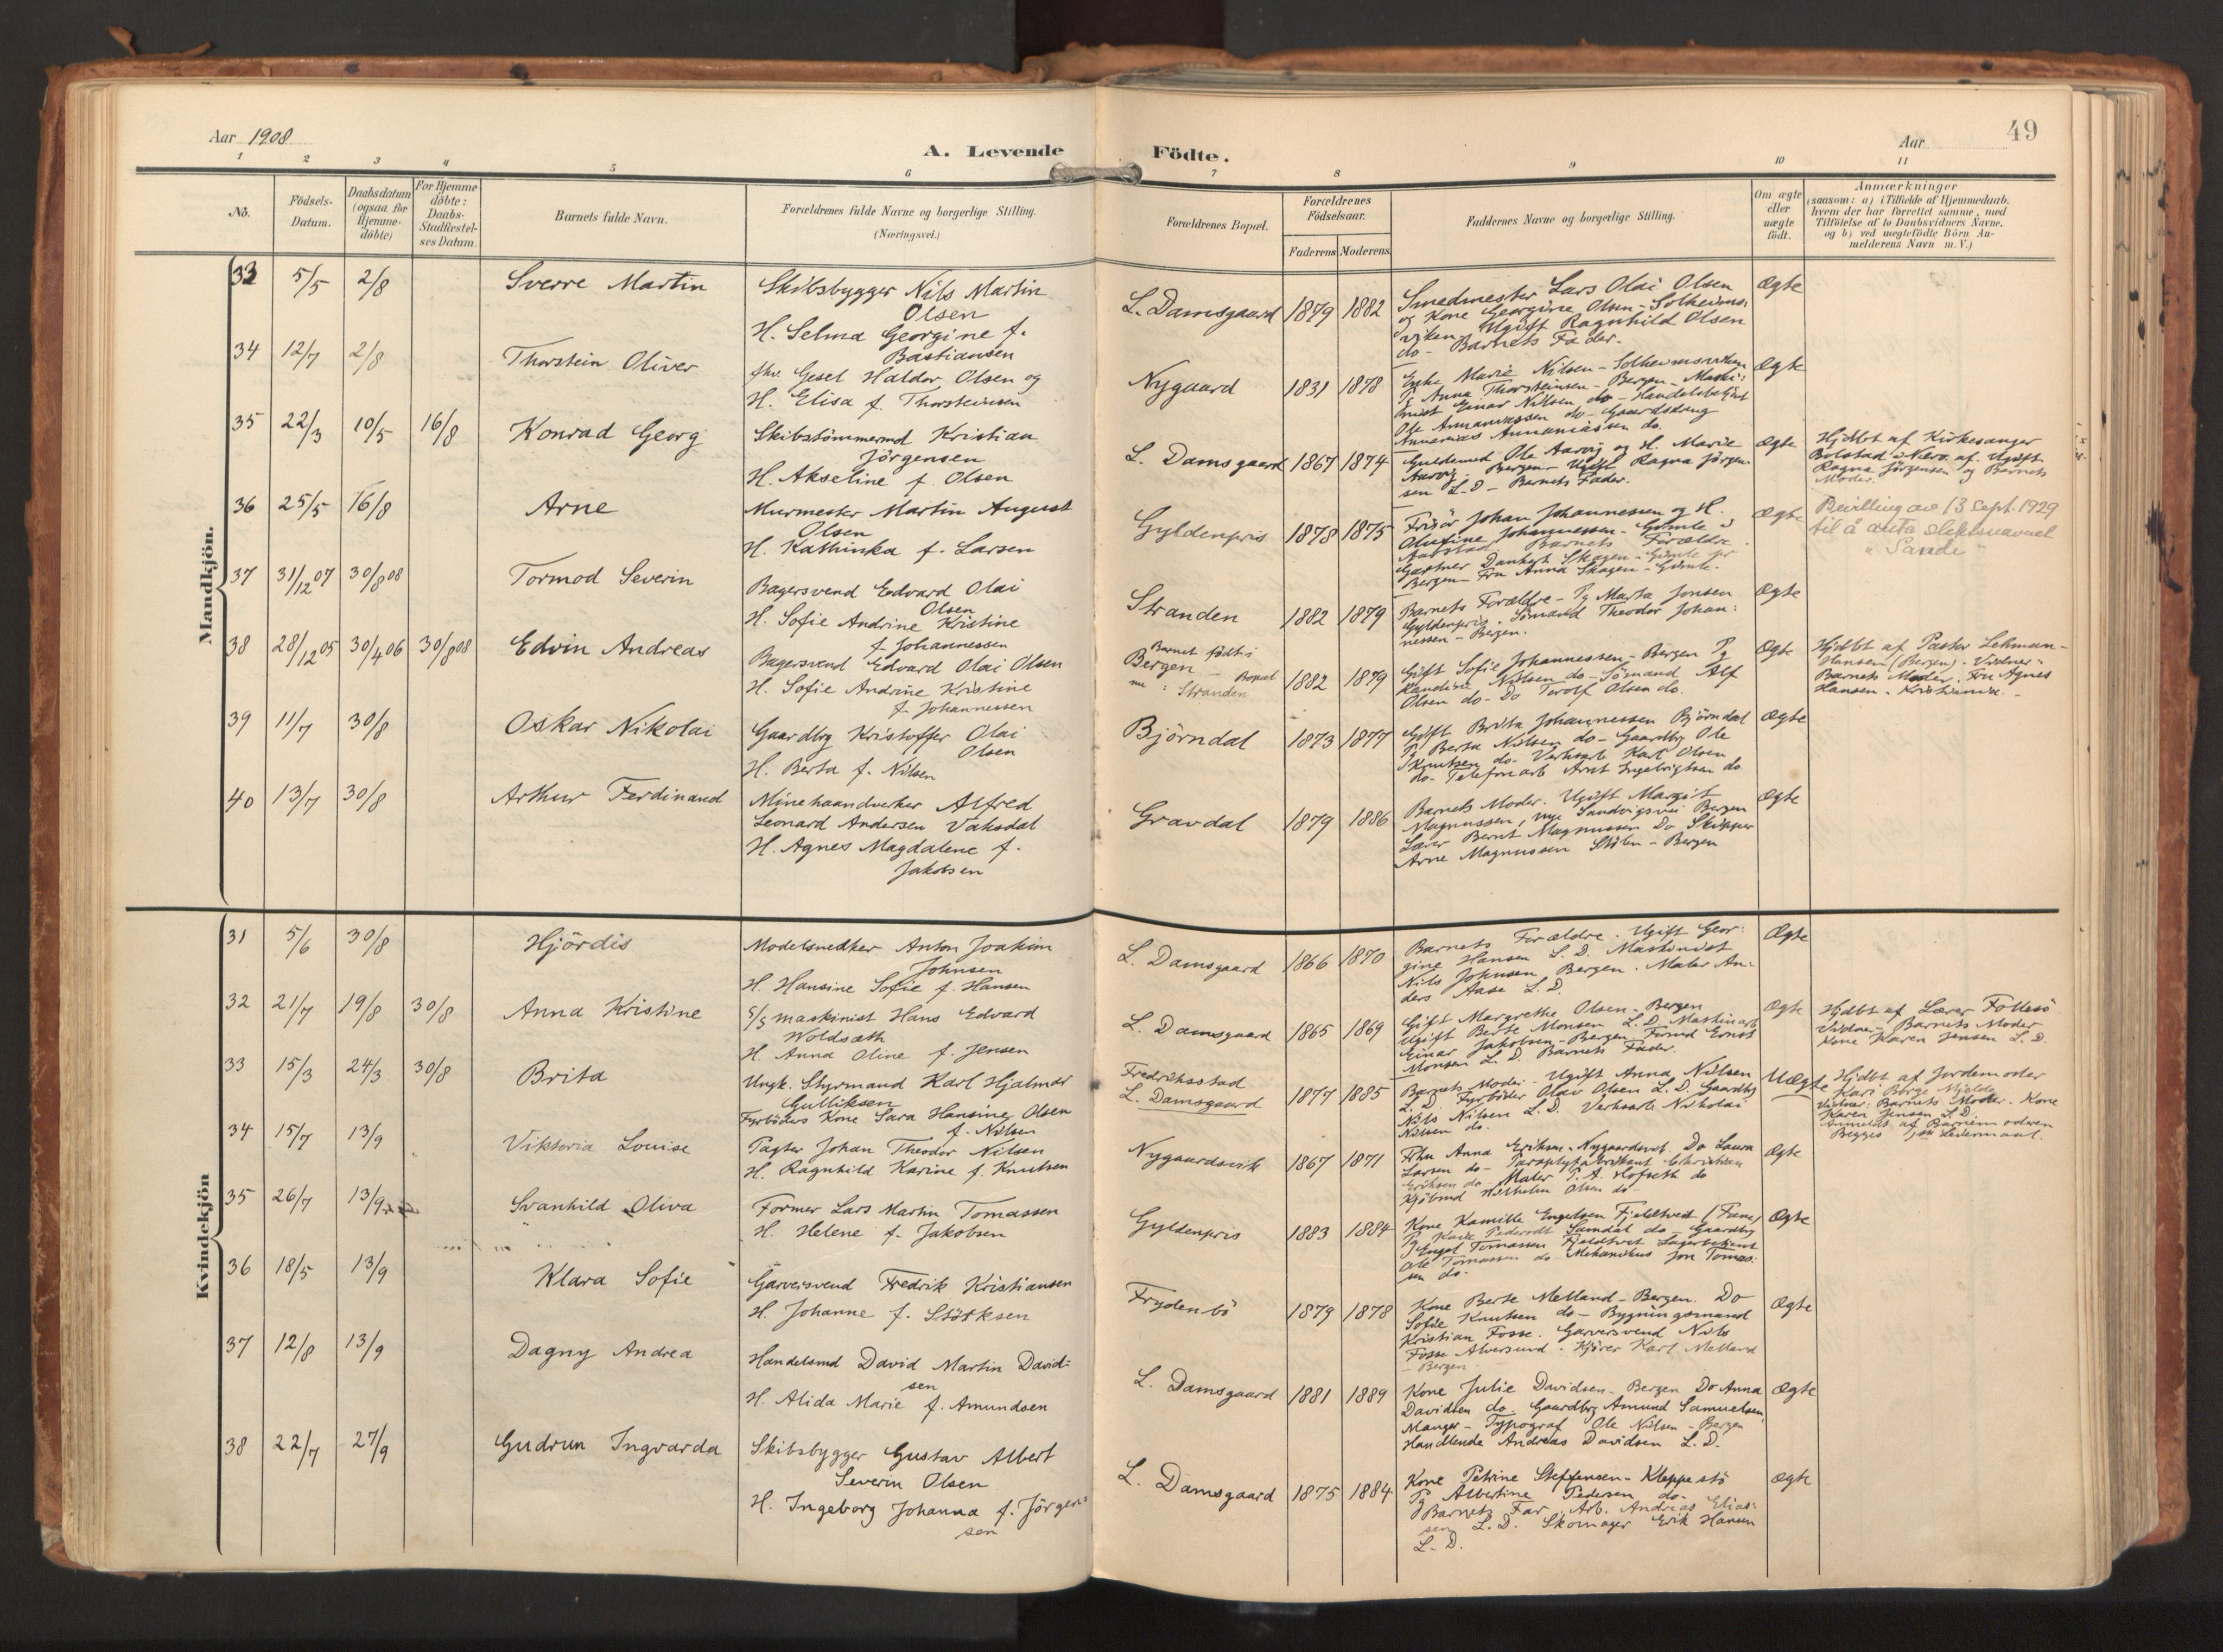 Aar 1908
A. Levende Födte.
Aar
49
1 2 3 4 5 6 7 8 9 10 11
No.
Födsels-Datum.
Daabsdatum (ogsaa for Hjemme-döbte)
For Hjemme döbte: Daabs-Stadfæstel-ses Datum.
Barnets fulde Navn.
Forældrenes fulde Navne og borgerlige Stilling.
(Næringsvei.)
Forældrenes Bopæl.
Forældrenes Födselsaar.
Faderens Moderens
Faddernes Navne og borgerlige Stilling.
Om ægte eller uægte födt.
Anmærkninger
(saasom: a) i Tilfælde af Hjemmedaab, hvem der har forrettet samme, med Tilföielse af to Daabsvidners Navne, og b) ved uægtefödte Börn An-melderens Navn m. V.)
Mandkjön.
33 5/5 2/8 Sverre Martin
Skibsbygger Nils Martin
Olsen
H. Selma Georgine f.
Bastiansen
L. Damsgaard 1879 1882
Smedmester Lars Olai Olsen
og Kone Georgine Olsen - Solheims-
viken Ugift Ragnhild Olsen
do - Barnets Fader.
Ægte
34 12/7 2/8 Thorstein Oliver
fhv. Gesel Haldor Olsen og
H. Elisa f. Thorsteinsen
Nygaard 1831 1878
Enke Marie Nilsen - Solheimsviken
Pg Anna Thorsteinsen - Bergen - Maski-
nist Einar Nilsen do - Handelsbetjent
Ole Annaniassen do - Gaardsdreng
Annanias Annaniassen do.
Ægte
35 22/3 10/5 16/8 Konrad Georg
Skibstömmermd Kristian
Jörgensen
H. Akseline f. Olsen
L. Damsgaard 1867 1874
Guldsmed Ole Aarvig og H. Marie
Aarvig - Bergen - Ugift Ragna Jörgen-
sen L. D - Barnets Fader.
Ægte
Hjdbt af Kirkesanger
Bolstad i Nærv. af Ugift
Ragna Jörgensen og Barnets
Moder.
36 25/5 16/8 Arne
Murmester Martin August
Olsen
H. Kathinka f. Larsen
Gyldenpris 1878 1875
Frisör Johan Johannessen og H.
Olufine Johannessen - Gimle i
Aarstad Barnets Forældre.
Gartner Dankert Skagen - Gimle pr
Bergen - Fru Anna Skagen - Gimle.
Ægte
Bevilling av 13 Sept. 1929
til å anta slektsnavnet
"Sande"
37 31/12 07 30/8 08 Tormod Severin
Bagersvend Edvard Olai
Olsen
H. Sofie Andrine Kristine
f. Johannessen
Stranden 1882 1879
Barnets Forældre - Pg Marta Jonsen
Gyldenpris. Sömand Theodor Johan-
nessen - Bergen.
Ægte
38 28/12 05 30/4 06 30/8 08 Edvin Andreas
Bagersvend Edvard Olai Olsen
H. Sofie Andrine Kristine
f. Johannessen
Barnet födt i
Bergen Bopæl
nu: Stranden
1882 1879
Gift Sofie Johannessen - Bergen Pg
Kandine Nilsen do - Sömand Alf
Olsen do - Do Torolf Olsen do.
Ægte
Hjdbt af Pastor Lehman-
Hansen (Bergen). Vidner:
Barnets Moder. Fru Agnes
Hansen - Kristiania.
39 11/7 30/8 Oskar Nikolai
Gaardbrg Kristoffer Olai
Olsen
H. Berta f. Nilsen
Björndal 1873 1877
Gift Brita Johannessen Björndal
Pg Berta Nilsen do - Gaardbrg Ole
Knutsen do - Verksarb Karl Olsen
do - Telefonarb Arnt Ingebrigtsen do
Ægte
40 13/7 30/8 Arthur Ferdinand
Minehaandverker Alfred
Leonard Andersen Vaksdal
H. Agnes Magdalene f.
Jakobsen
Gravdal 1879 1886
Barnets Moder. Ugift Margit
Magnussen, nye Sandvigsvei Bergen
Lærer Bernt Magnussen Do Skipper
Arne Magnussen Stölen - Bergen
Ægte
Kvindekjön
31 5/6 30/8 Hjördis
Modelsnedker Anton Joakim
Johnsen
H. Hansine Sofie f. Hansen
L. Damsgaard 1866 1870
Barnets Forældre. Ugift Geor-
gine Hansen L. D. Maskinist
Nils Johnsen Bergen. Maler An-
ders Aase L. D.
Ægte
32 21/7 19/8 30/8 Anna Kristine
S/S maskinist Hans Edvard
Woldsæth
H. Anna Oline f. Jensen
L. Damsgaard 1865 1869
Gift Margrethe Olsen - Bergen
Ugift Berte Monsen L. D. Maskinarb
Einar Jakobsen - Bergen Ernst
Monsen L. D. Barnets Fader.
Ægte
Hjdbt af Lærer Follesö
Vidner - Barnets Moder
Kone Karen Jensen L. D.
33 15/3 24/3 30/8 Brita
Ungk. Styrmand Karl Hjalmar
Gulliksen
Fyrböders Kone Sara Hansine Olsen
f. Nilsen
Fredriksstad
L. Damsgaard
1877 1885
Barnets Moder. Ugift Anna Nilsen
L. D. Fyrböder Olav Olsen L. D. Gaardbrg
Nils Nilsen L. D. Verksarb Nikolai
Nilsen do.
Uægte
Hjdbt af Jordemoder
Kari Börge Mjelde
Vidner: Barnets Moder. Kone
Karen Jensen L. D.
Anmeldt af Barnemoderen
Begges Leiermaal.
34 15/7 13/9 Viktoria Louise
Pagter Johan Theodor Nilsen
H. Ragnhild Karine f. Knutsen
Nygaardsvik 1867 1871
Frk Anna Eriksen. Nygaardsvik. Do Laura
Larsen do - Paraplyfabrikant Christian
Eriksen do - Maler P. A. Hofseth do
Kjöbmd Wilhelm Olsen do -
Ægte
35 26/7 13/9 Svanhild Oliva
Former Lars Martin Tomassen
H. Helene f. Jakobsen
Gyldenpris 1883 1884
Kone Kamille Engelsen Fjeldtveit (Fane)
Pg Kari Pedersdt Samdal do Gaardbrg
Engel Tomassen Fjeldtveit Lagerbetjent
Ole Tomassen do Mekanikus Jon Tomas-
sen do -
Ægte
36 18/5 13/9 Klara Sofie
Garversvend Fredrik Kristiansen
H. Johanne f. Störksen
Frydenbö 1879 1878
Kone Berte Melland - Bergen. Do
Sofie Knutsen do - Bygningsmand
Kristian Fosse. Garversvend Nils
Fosse Alversund. Kjörer Karl Melland
- Bergen
Ægte
37 12/8 13/9 Dagny Andrea
Handelsmd David Martin David-
sen
H. Alida Marie f. Amundsen
L. Damsgaard 1881 1889
Kone Julie Davidsen - Bergen Do Anna
Davidsen do. Gaardbrg Amund Samuelsen
Manger - Typograf Ole Nilsen - Bergen
Handlende Andreas Davidsen L. D.
Ægte
38 22/7 27/9 Gudrun Ingvarda
Skibsbygger Gustav Albert
Severin Olsen
H. Ingeborg Johanna f. Jörgen-
sen
L. Damsgaard 1875 1884
Kone Petrine Steffensen - Kleppestö
Pg Albertine Pedersen do -
Barnets Far, Arb. Andreas Elias-
sen L. D. Skomager Erik Hansen
L. D.
Ægte